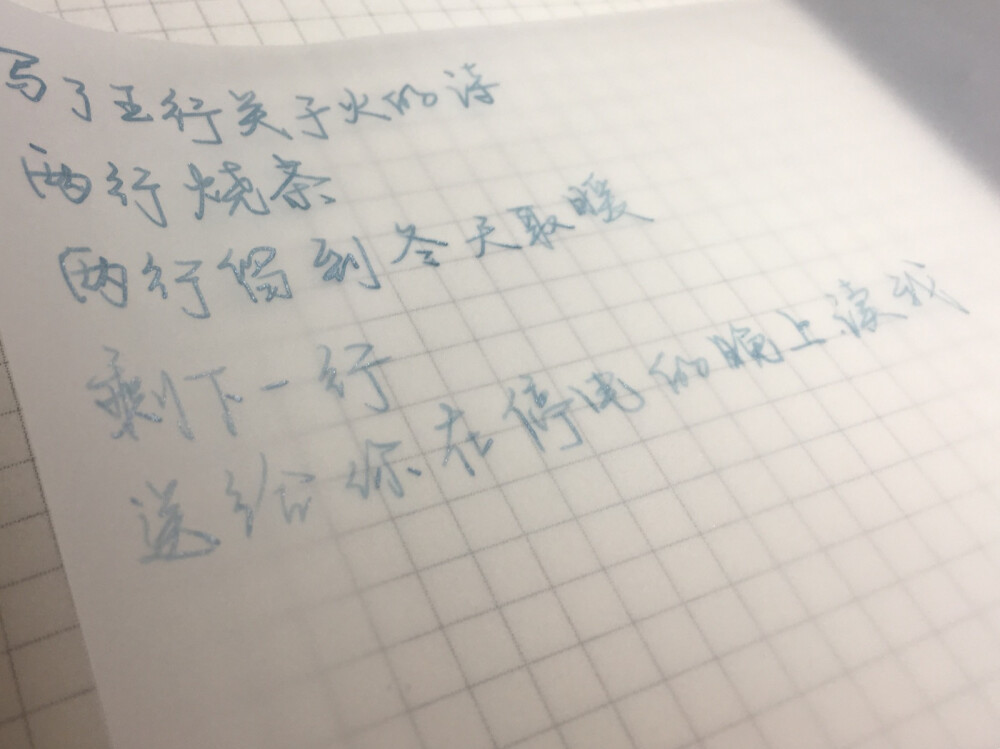 写了五行关于火的诗
两行烧茶
两行留到冬天取暖
剩下一行
送给你在停电的晚上读我